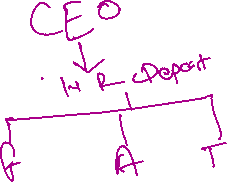 CEO
H R Depart
G A T